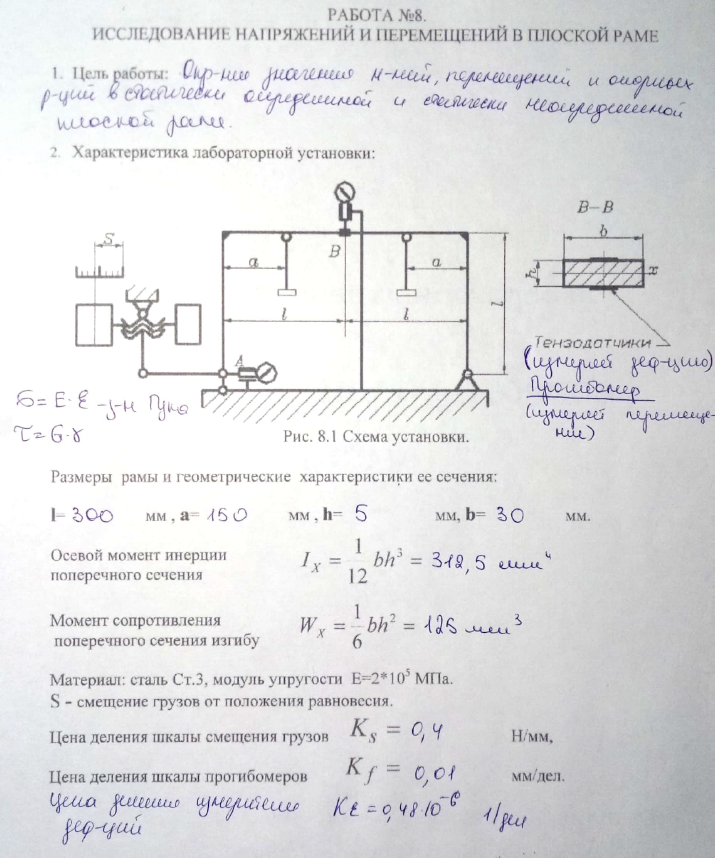 РАБОТА №8.
ИССЛЕДОВАНИЕ НАПРЯЖЕНИЙ И ПЕРЕМЕЩЕНИЙ В ПЛОСКОЙ РАМЕ
1. Цель работы: Опр-ние значения н-ний, перемещений и опорных
р-ций в статически определимой и статически неопределимой
плоской раме.
2. Характеристика лабораторной установки:
S
a
B
a
l
l
l
A
B–B
b
h
x
Тензодатчики
(измеряет деф-цию)
Прогибомер
(измеряет перемеще-
ние)
σ = E·ε -з-н Гука
τ = G·γ
Рис. 8.1 Схема установки.
Размеры рамы и геометрические характеристики ее сечения:
l= 300 мм , a= 150 мм , h= 5 мм, b= 30 мм.
Осевой момент инерции
поперечного сечения
I_x = 1/12 bh³ = 312,5 мм⁴
Момент сопротивления
поперечного сечения изгибу
W_x = 1/6 bh² = 125 мм³
Материал: сталь Ст.3, модуль упругости E=2*10⁵ МПа.
S - смещение грузов от положения равновесия.
Цена деления шкалы смещения грузов K_s = 0,4 Н/мм,
Цена деления шкалы прогибомеров K_f = 0,01 мм/дел.
Цена деления измерителя Kε = 0,48·10⁻⁶ 1/дел
деф-ций